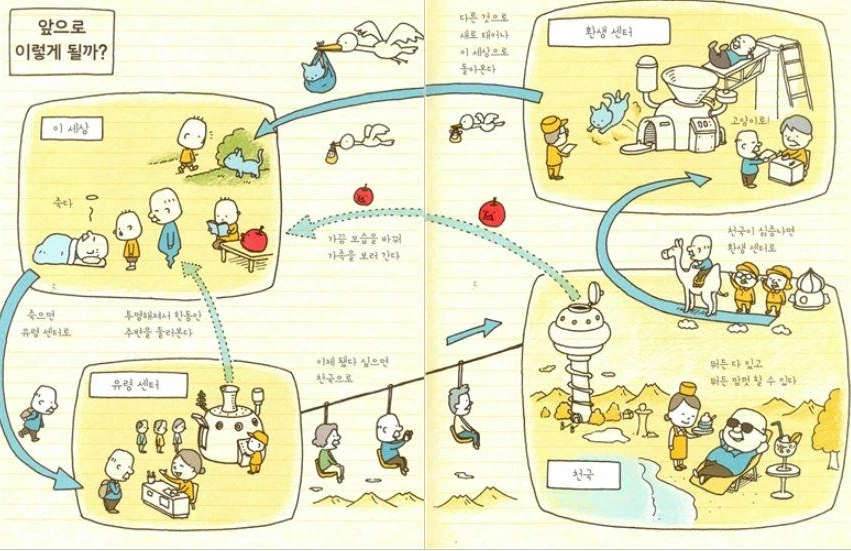 앞으로
이렇게 될까?
이 세상
죽다
죽으면
유령 센터로
투명해져서 한동안
주변을 둘러본다
유령 센터
이제 됐다 싶으면
천국으로
가끔 모습을 바꿔
가족을 보러 간다
다른 것으로
새로 태어나
이 세상으로
돌아온다
환생 센터
고양이로!
천국이 싫증나면
환생 센터로
뭐든 다 있고
뭐든 맘껏 할 수 있다
천국